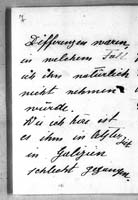 Differenzen waren,
in welchem Fall
ich ihn natürlich
nicht nehmen
würde.
Wie ich höre ist
es ihm in letzter Zeit
in Galizien
schlecht gegangen.